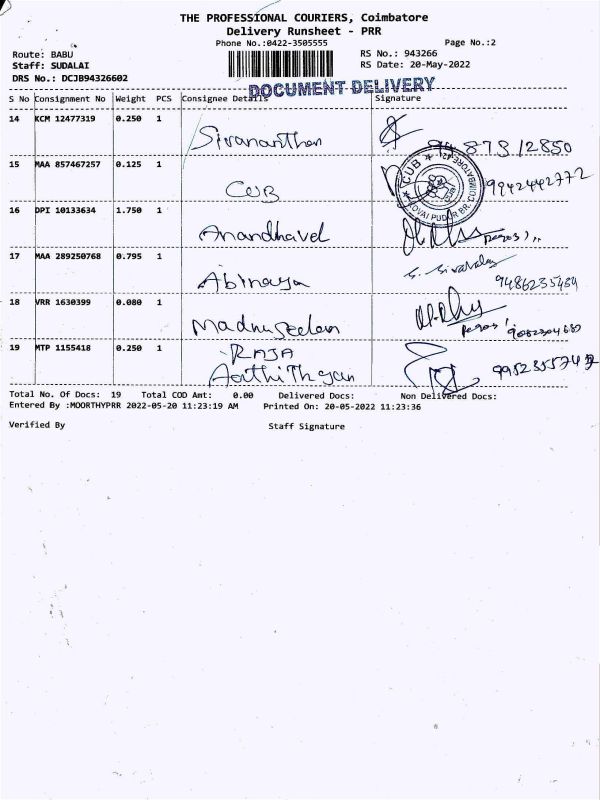 THE PROFESSIONAL COURIERS, Coimbatore
Delivery Runsheet - PRR
Phone No.:0422-3505555 Page No.:2
Route: BABU RS No.: 943266
Staff: SUDALAI RS Date: 20-May-2022
DRS No.: DCJB94326602
DOCUMENT DELIVERY
S No Consignment No Weight PCS Consignee Details Signature
14 KCM 12477319 0.250 1 Sivananthan
15 MAA 857467257 0.125 1 CUB 9942442772
CUB COIMBATORE 42 KOVAI PUDUR BR.
16 DPI 10133634 1.750 1 Anandhavel
17 MAA 289250768 0.795 1 Abinaya S. Sivabalan
9486235484
18 VRR 1630399 0.080 1
19 MTP 1155418 0.250 1 RAJA
Aathithyan
Total No. Of Docs: 19 Total COD Amt: 0.00 Delivered Docs: Non Delivered Docs:
Entered By :MOORTHYPRR 2022-05-20 11:23:19 AM Printed On: 20-05-2022 11:23:36
Verified By Staff Signature